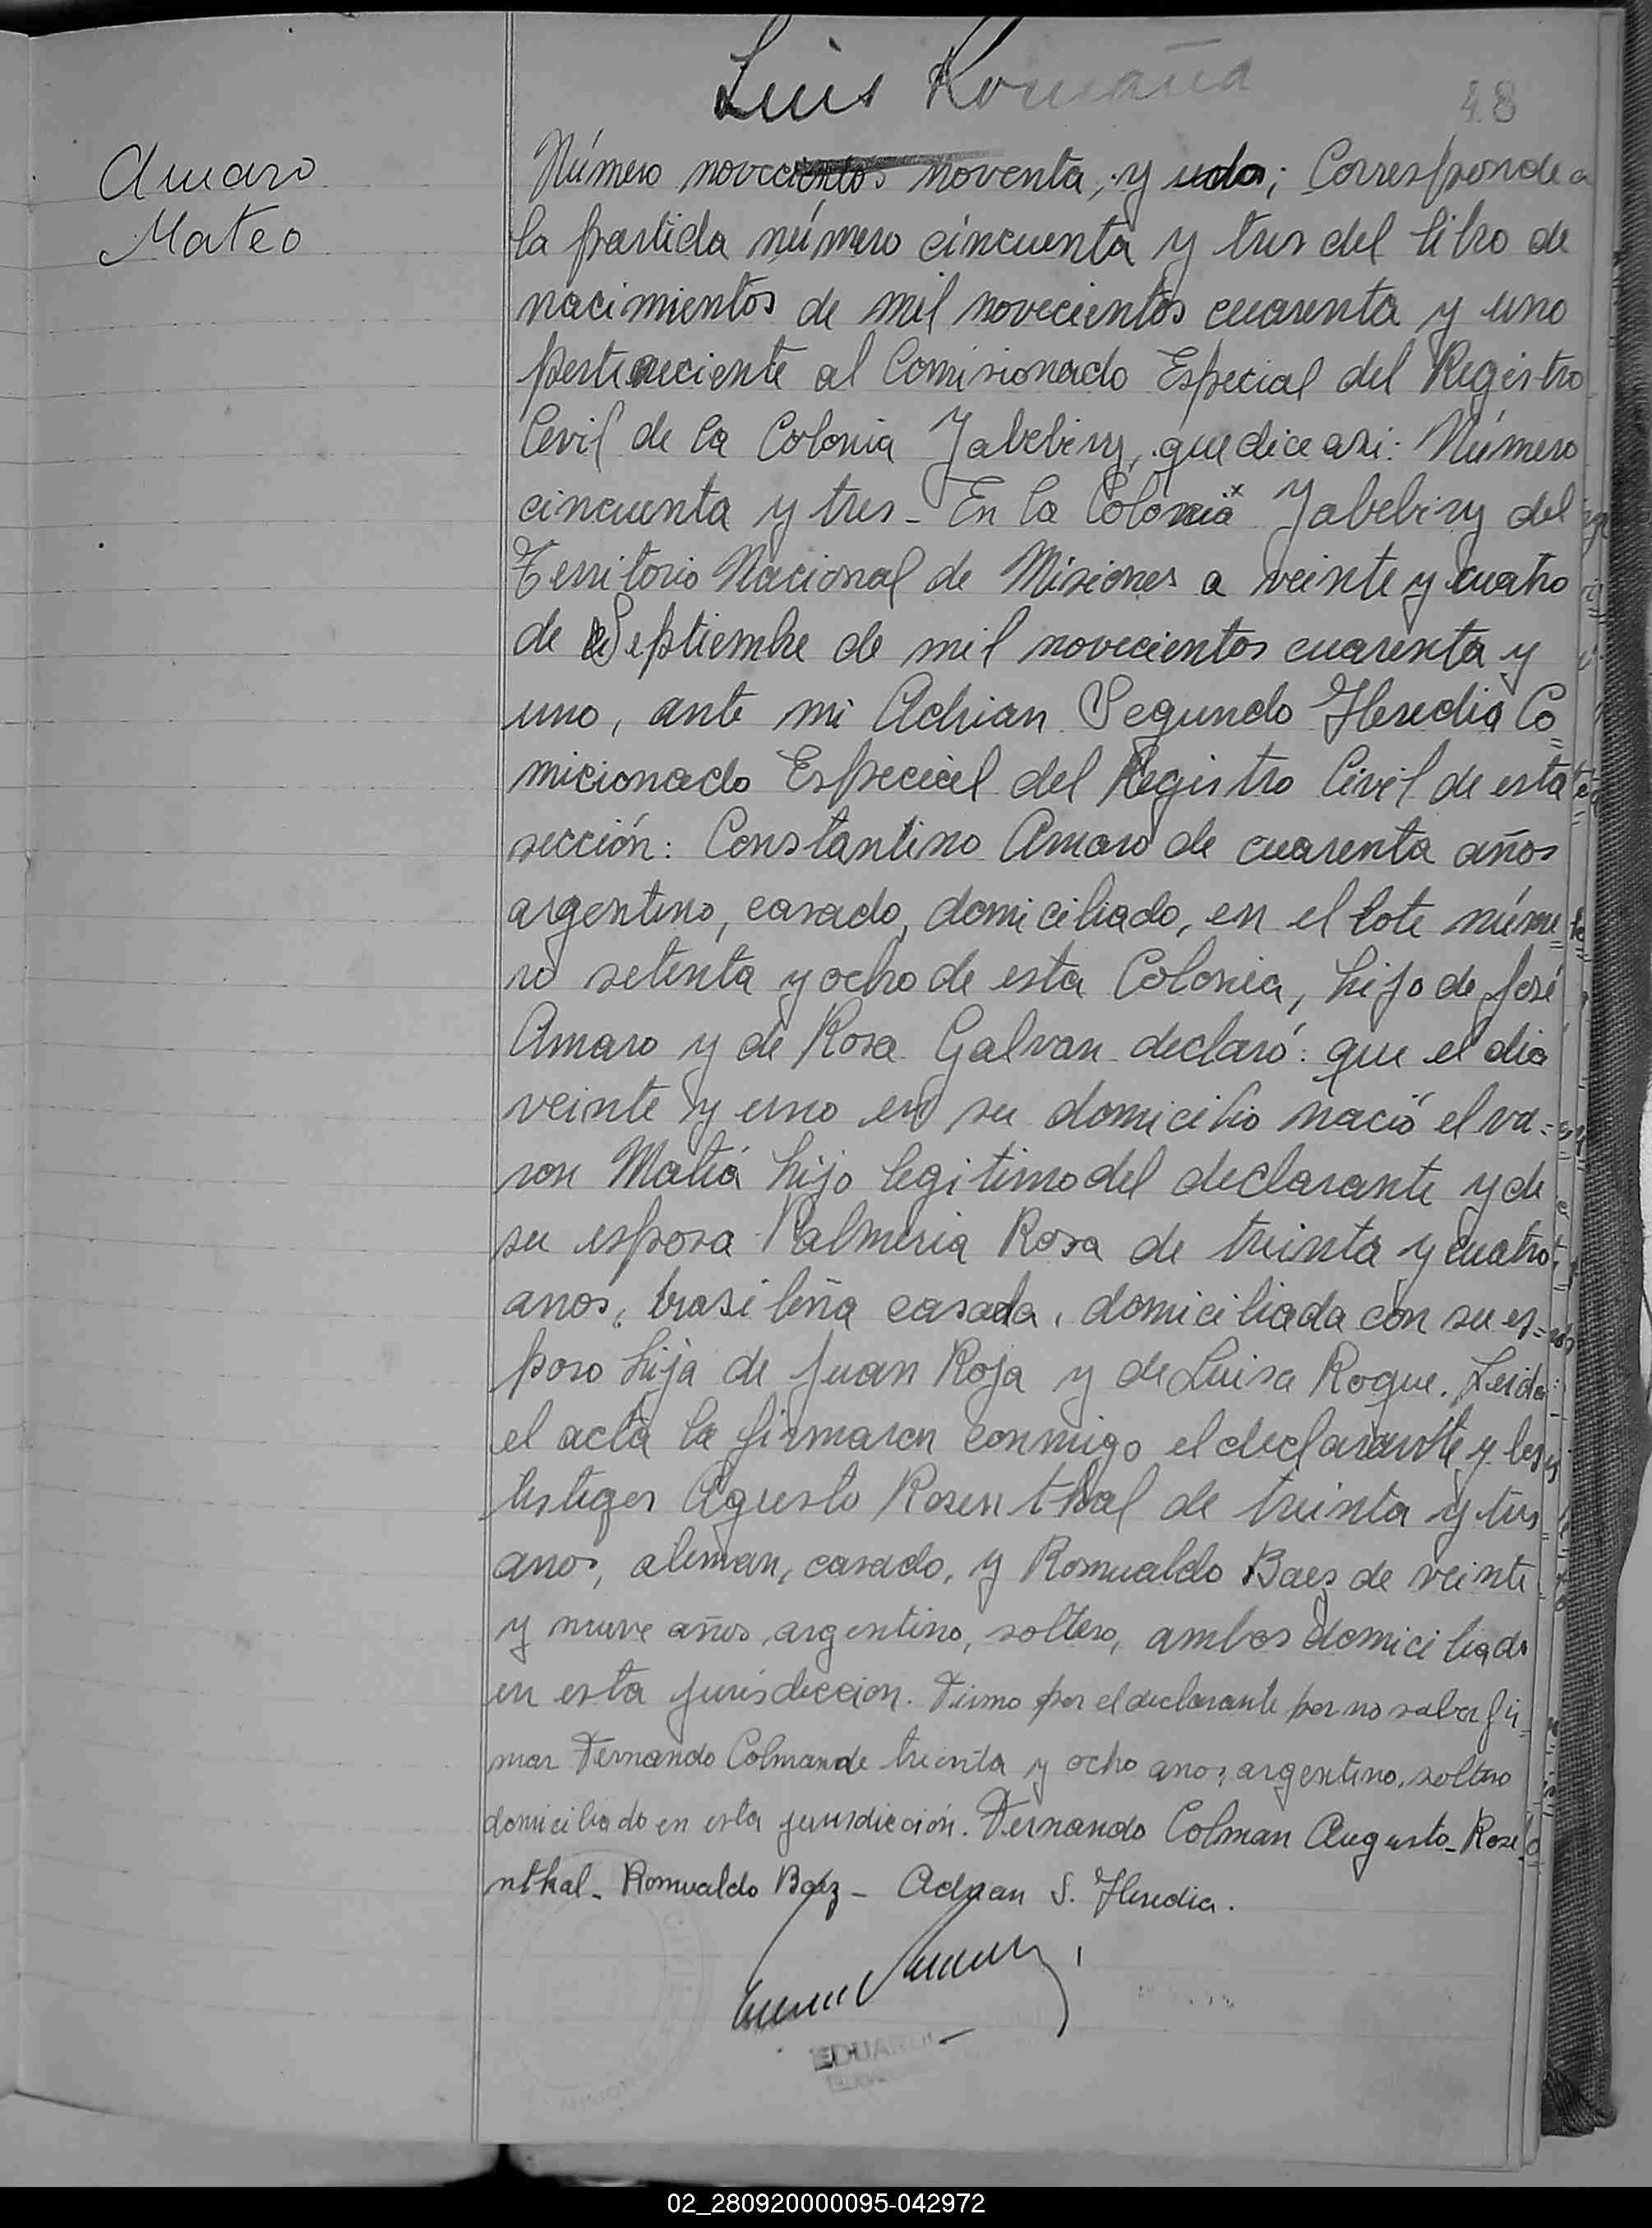 Luis Romaña
48
Amaro
Mateo
Número novecientos noventa, y dos; Corresponde a
la partida número cincuenta y tres del libro de
nacimientos de mil novecientos cuarenta y uno
perteneciente al Comisionado Especial del Registro
Civil de la Colonia Yabebiry, que dice asi: Número
cincuenta y tres - En la Colonia Yabebiry del
Territorio Nacional de Misiones a veinte y cuatro
de Septiembre de mil novecientos cuarenta y
uno, ante mi Adrian Segundo Heredia Co=
micionado Especial del Registro Civil de esta
sección: Constantino Amaro de cuarenta años
argentino, casado, domiciliado, en el lote núme=
ro setenta y ocho de esta Colonia, hijo de José
Amaro y de Rosa Galvan declaró: que el dia
veinte y uno en su domicilio nació el va=
ron hijo legitimo del declarante y de
su esposa Palmeria Rosa de treinta y cuatro
anos, brasileña casada, domiciliada con su es=
poso hija de Juan Roja y de Luisa Roque. Leida
el acta la firmaron conmigo el declarante y los
testigos Agusto Rosenthal de treinta y tres
anos, aleman, casado, y Romualdo Baes de veinte
y nueve años, argentino, soltero, ambos domiciliado
en esta jurisdiccion. Firmo por el declarante por no saber fir=
mar Fernando Colman de treinta y ocho anos, argentino, soltero
domiciliado en esta jurisdicción. Fernando Colman Augusto - Rose
nthal - Romualdo Baez - Adrian S. Heredia.
02_280920000095-042972